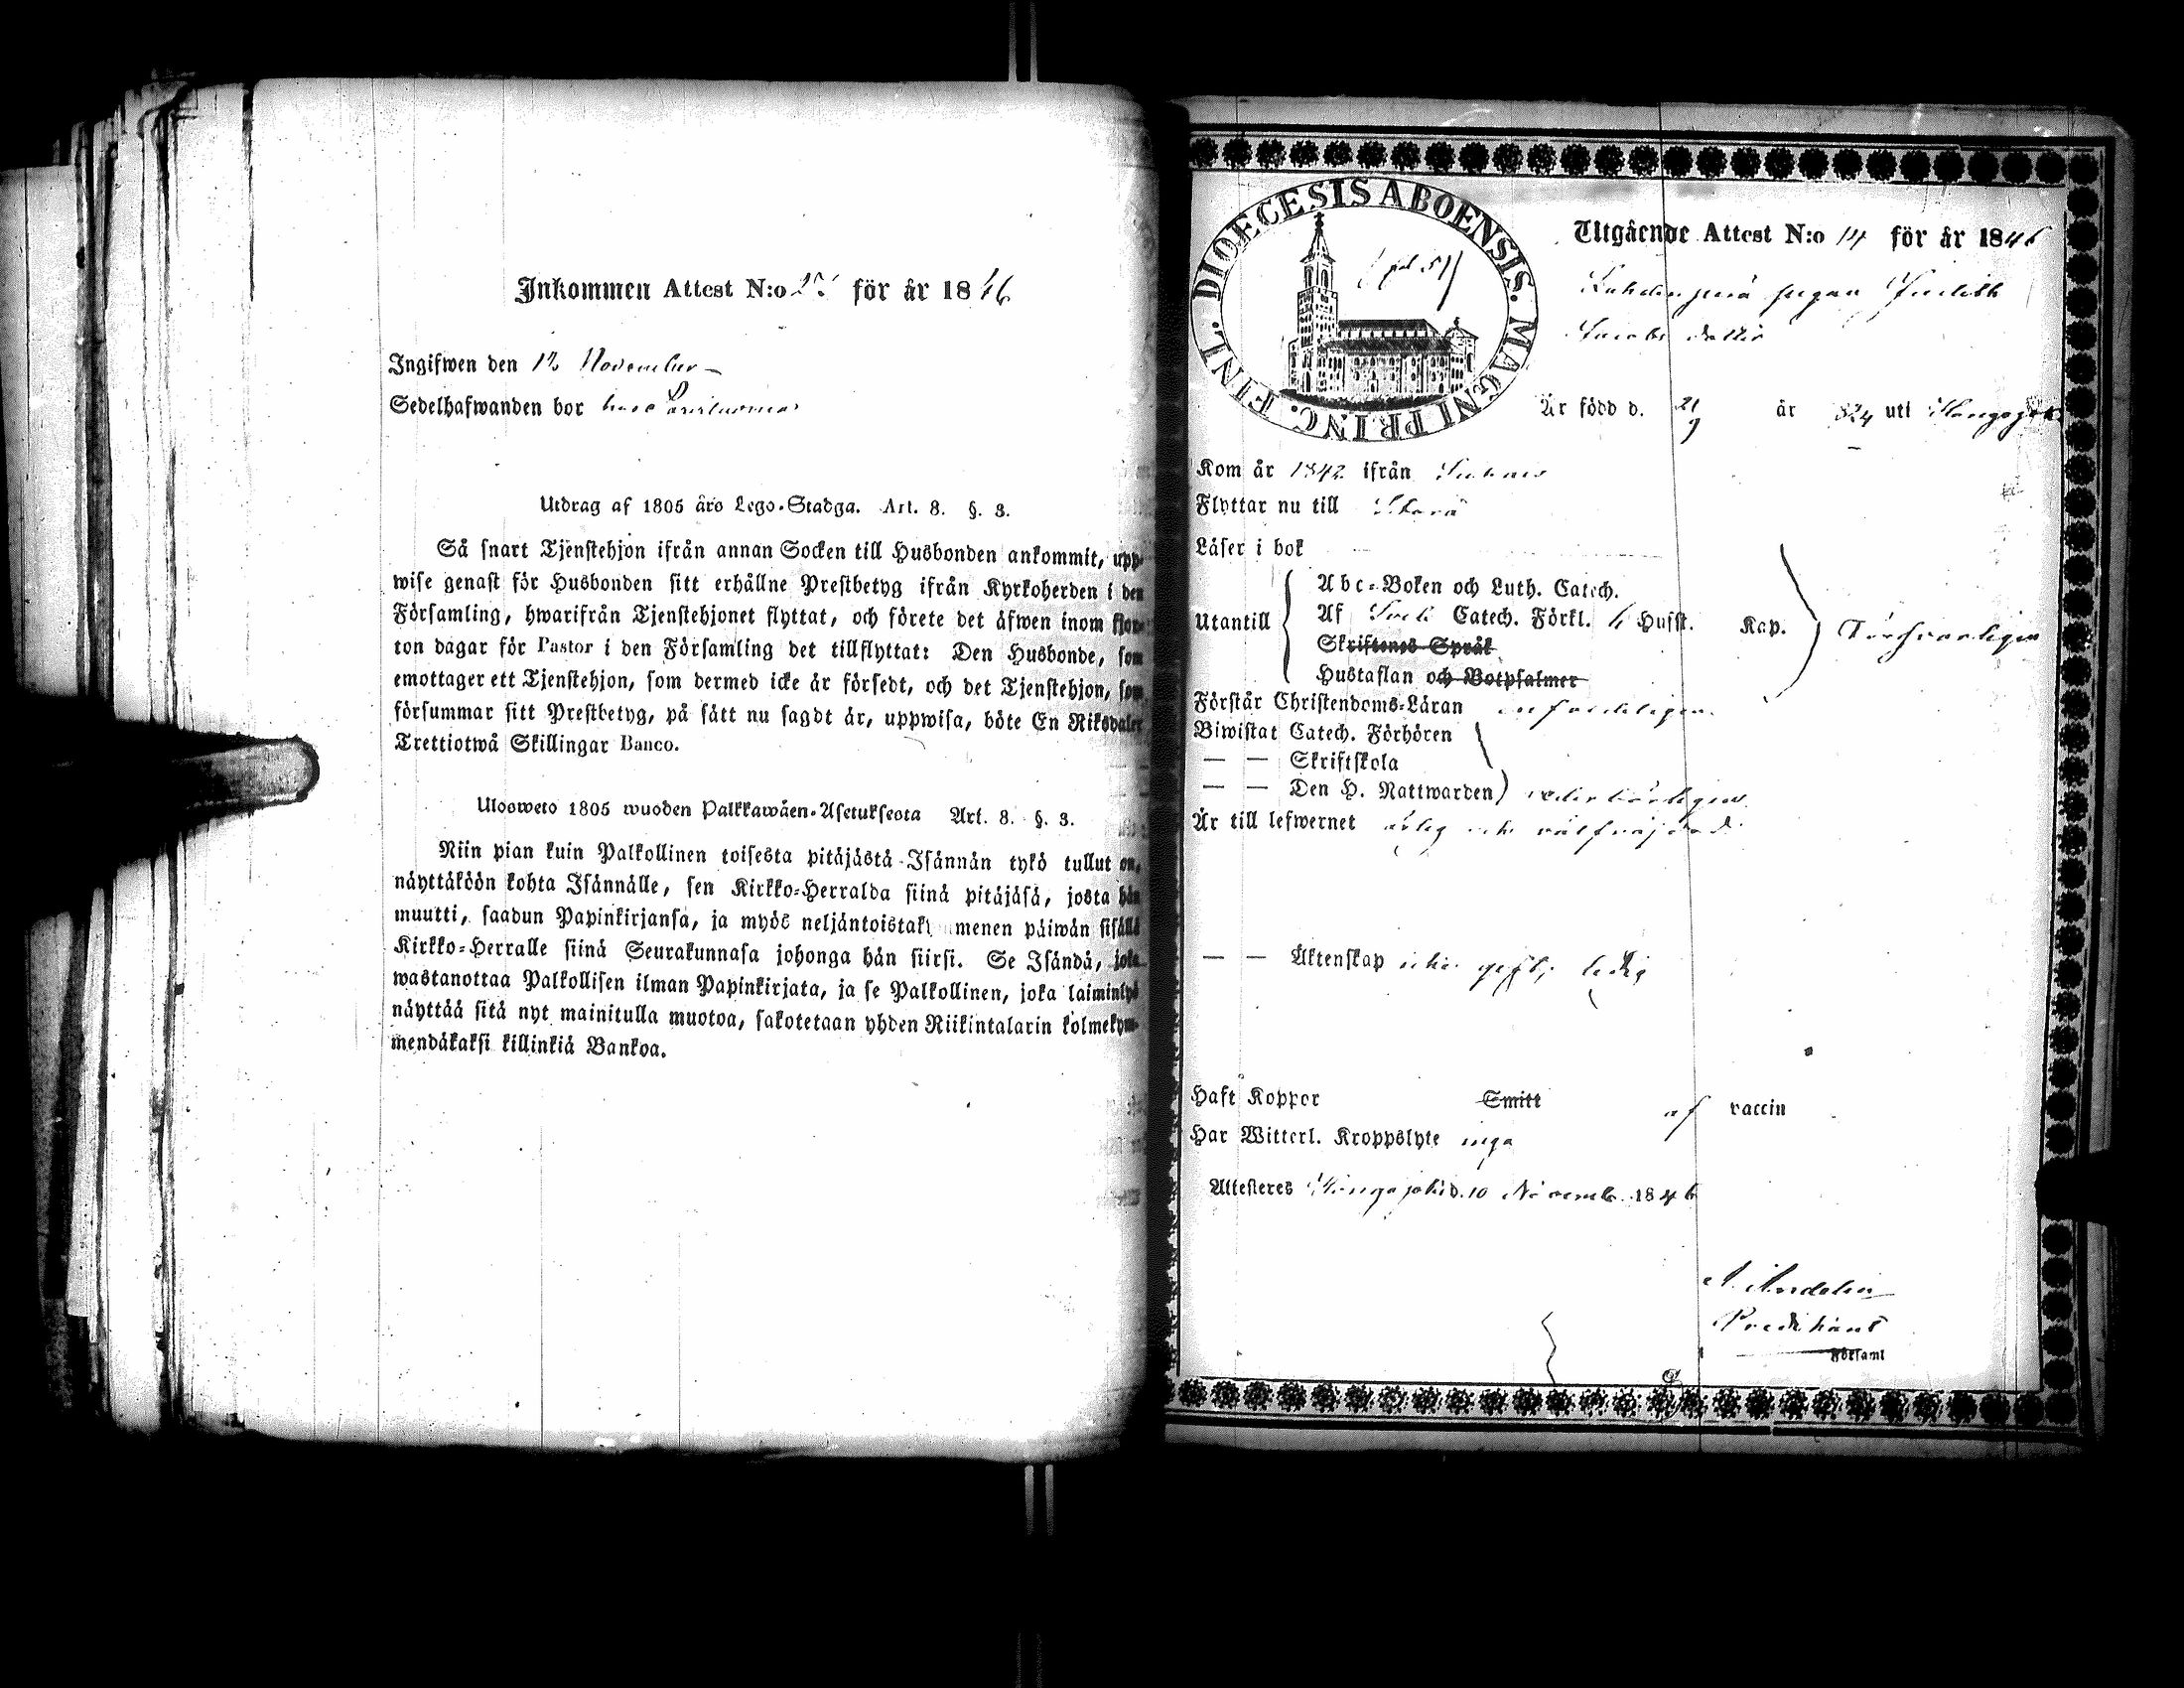 Inkommen Attest N:o för år 1846
Ingifwen den 12 November
Sedelhafwanden bor hos
Utdrag af 1805 års Lego-Stadga. Art. 8. §. 3.
Så snart Tjenstehjon ifrån annan Socken till Husbonden ankommit, upp-
wise genast för Husbonden sitt erhållne Prestbetyg ifrån Kyrkoherden i den
Församling, hwarifrån Tjenstehjonet flyttat, och förete det äfwen inom fjor-
ton dagar för Pastor i den Församling det tillflyttat: Den Husbonde, som
emottager ett Tjenstehjon, som dermed icke är försedt, och det Tjenstehjon, som
försummar sitt Prestbetyg, på sätt nu sagdt är, uppwisa, böte En Riksdaler
Trettiotwå Skillingar Banco.
Ulosweto 1805 wuoden Palkkawäen-Asetuksesta Art. 8. §. 3.
Niin pian kuin Palkollinen toisesta pitäjästä Isännän tykö tullut on,
näyttäköön kohta Isännälle, sen Kirkko-Herralda siinä pitäjäsä, josta hän
muutti, saadun Papinkirjansa, ja myös neljäntoistaky menen päiwän sisällä
Kirkko-Herralle siinä Seurakunnasa johonga hän siirsi. Se Isändä, joka
wastanottaa Palkollisen ilman Papinkirjata, ja se Palkollinen, joka laiminlyö
näyttää sitä nyt mainitulla muotoa, sakotetaan yhden Riikintalarin kolmekym-
mendäkaksi killinkiä Bankoa.
FINL. DIOECESIS ABOENSIS. MAGNI PRINC.
Utgående Attest N:o 14 för år 1846
pigan Judith
Jacobs dotter
Är född d. 21/9 år 824 uti
Kom år 1842 ifrån
Flyttar nu till Storå
Läser i bok
Utantill
Abc-Boken och Luth. Catech.
Af Catech. Förkl. Husst. Kap. Försvarligen
Skriftenes Språk
Hustaflan och Botpsalmer
Förstår Christendoms-Läran enfaldeligen
Biwistat Catech. Förhören
— — Skriftskola
— — Den H. Nattwarden vederbörligen
Är till lefwernet ärlig och välfräjdad
— — Äktenskap icke gift; ledig
Haft Koppor Smitt af vaccin
Har Witterl. Kroppslyte inga
Attesteres d. 10 Novemb. 1846
Predikant
Församl